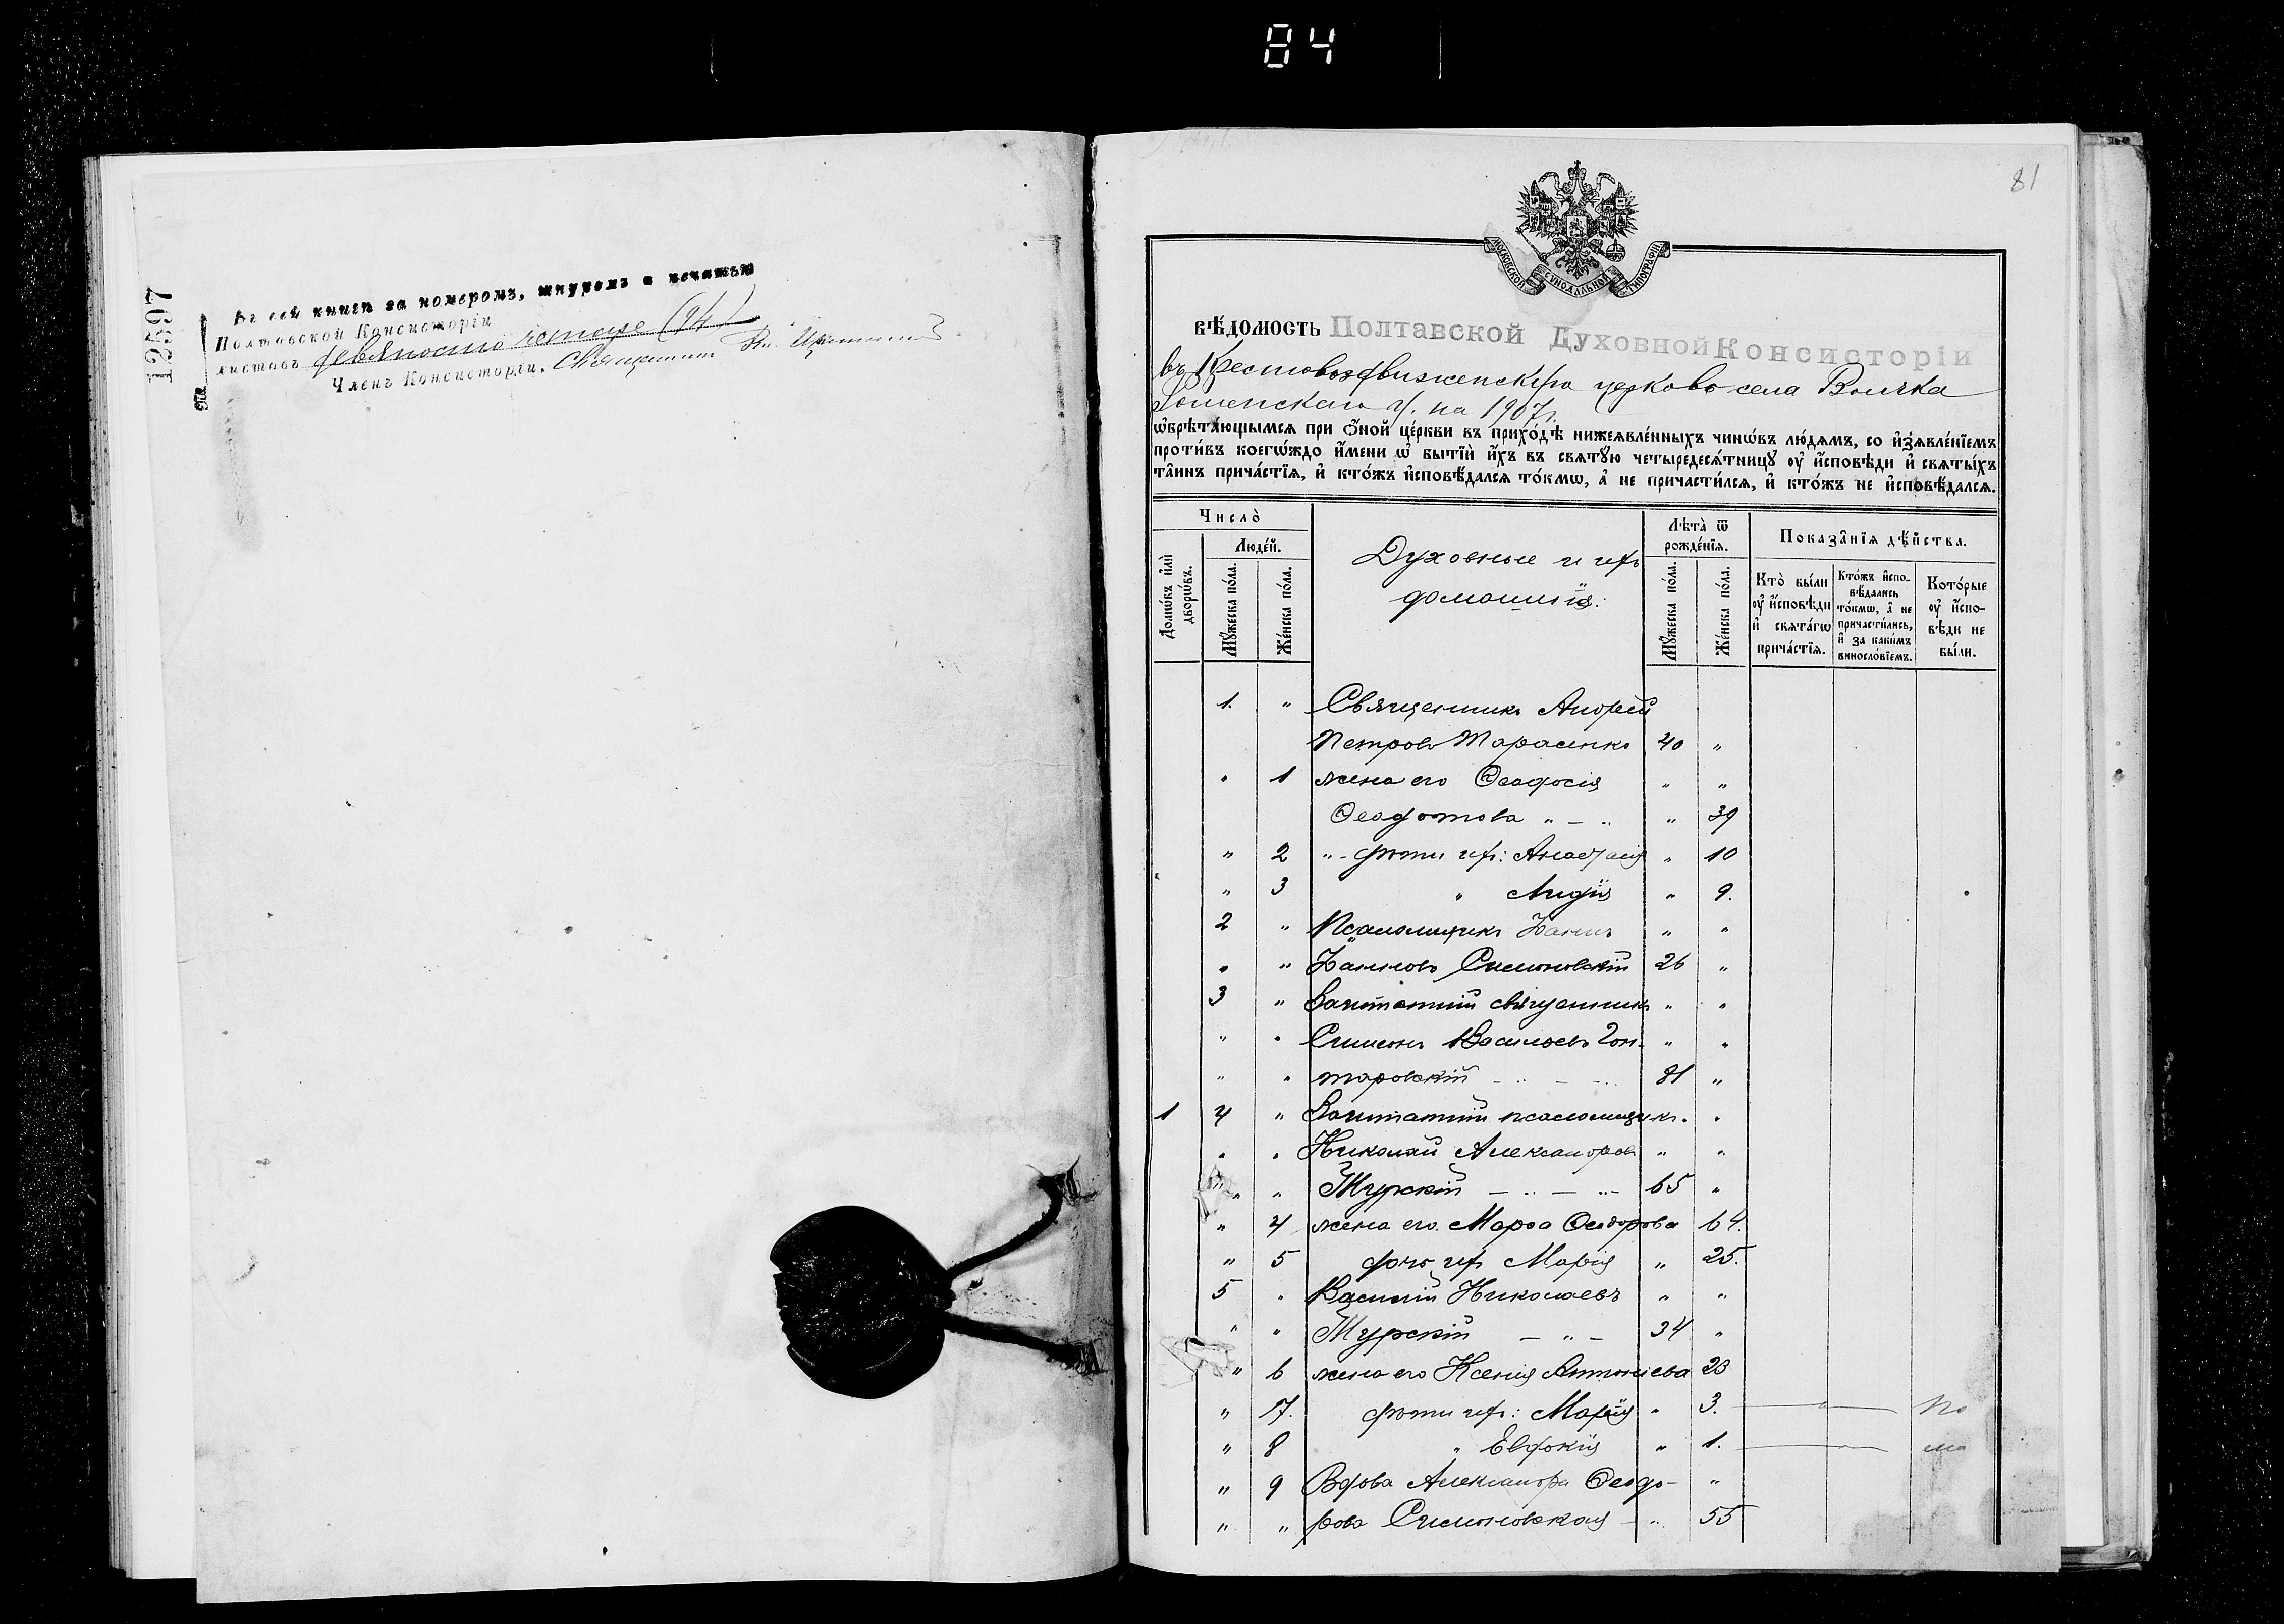 84
12597
Въ сей книгѣ за номеромъ, шнуромъ и печатью
Полтавской Консисторіи
листовъ девяносто четыре (94)
Членъ Консисторіи, Священникъ
81
МОСКОВСКОЙ СѴНОДАЛЬНОЙ ТИПОГРАФІИ
ВѢДОМОСТЬ Полтавской Духовной Консисторіи
въ Крестовоздвиженскую церковь села Волчка
на 1907 г.
ѡбрѣта́ющымсѧ при ѻ҆́ной це́ркви въ прихо́дѣ нижеѧвле́нныхъ чинѡ́въ лю́дѧмъ, со и҆з̾ѧвле́нїемъ
проти́въ коегѡ́ждо и҆́мени ѡ҆ бытїѝ и҆́хъ въ свѧтꙋ́ю четыредесѧ́тницꙋ оу҆ и҆́сповѣди и҆ свѧты́хъ
та̑инъ прича́стїѧ, и҆ кто́жъ и҆сповѣ́далсѧ то́кмѡ, а҆ не причасти́лсѧ, и҆ кто́жъ не и҆сповѣ́далсѧ.
Число̀
Люде́й.
Домѡ́въ и҆лѝ дворѡ́въ.
Мꙋ́жеска по́ла.
Же́нска по́ла.
Духовные и ихъ
домашніе:
Лѣ́та ѿ рожде́нїѧ.
Мꙋ́жеска по́ла.
Же́нска по́ла.
Показа̑нїѧ дѣ́йства.
Кто̀ бы́ли оу҆ и҆́сповѣди и҆ свѧта́гѡ прича́стїѧ.
Кто́жъ и҆спо-вѣ́дались то́кмѡ, а҆ не причасти́лись, и҆ за каки́мъ виносло́вїемъ.
Кото́рые оу҆ и҆́спо-вѣди не бы́ли.
1. " Священникъ Андрей
Петровъ Тарасенко 40 "
" 1 жена его Ѳеодосія " "
Ѳеодотова " – " " 39
" 2 " - дѣти ихъ: Анастасія " 10
" 3 " Лидія " 9.
2 " Псаломщикъ Іоаннъ " "
" " Іоанновъ Симоновскій 26 "
3 " Заштатный священникъ " "
" " Симеонъ Васильевъ Гон- " "
" " таровскій – " – " 81 "
1 4 " Заштатный псаломщикъ. "
" " Николай Александровъ " "
" " Журскій – " – " – 65 "
" 4 жена его Марѳа Ѳеодорова 64.
" 5 дочь ихъ Марія " 25.
5 " Василій Николаевъ " "
" " Журскій – " – 34 "
" 6 жена его Ксенія Антоніева 23
" 7. дѣти ихъ: Марія " 3. По
" 8 " Евдокія " 1. мо
" 9 Вдова Александра Ѳеодо- "
" " рова Симоновская – " 55